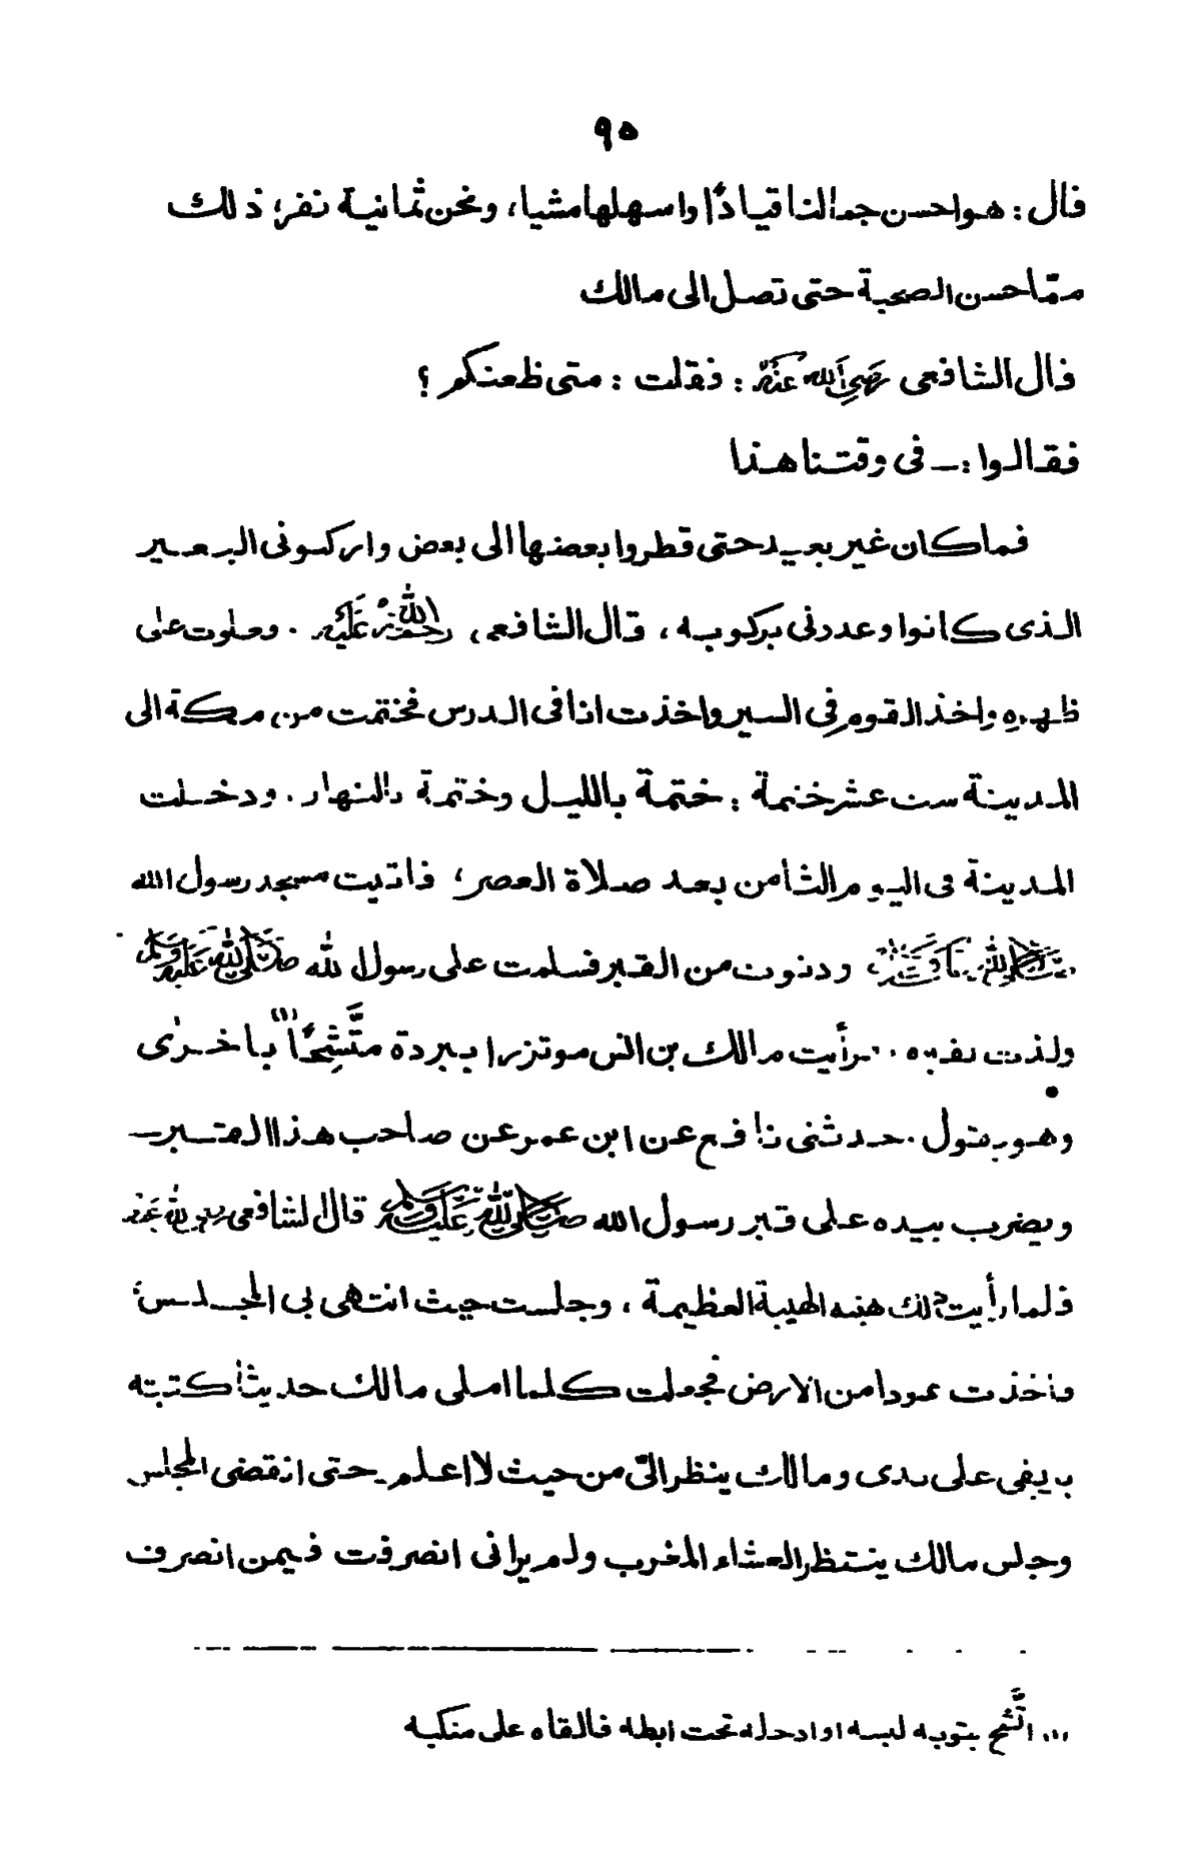 ٩٥
قال : هو احسن جمالنا قياداً واسهلها مشيا، ونحن ثمانية نفر؛ ذلك
ممّا حسن الصحبة حتى تصل الى مالك
قال الشافعى رَضِىَ اللهُ عَنْهُ : فقلت : متى ظعنكم ؟
فقالوا :ـ فى وقتنا هذا
فما كان غير بعيد حتى قطروا بعضها الى بعض واركبونى البعير
الذى كانوا وعدونى بركوبه ، قال الشافعى رحمة الله عليه . وعلوت على
ظهره واخذ القوم فى السير واخذت انا فى الدرس فختمت من مكة الى
المدينة ست عشر ختمة : ختمة بالليل وختمة بالنهار . ودخلت
المدينة فى اليوم الثامن بعد صلاة العصر؛ فاتيت مسجد رسول الله
ودنوت من القبر فسلمت على رسول الله صلى الله عليه وسلم
ولذت بقبره . فرأيت مالك بن انس موتزرا ببردة متَّشِحًا (١) باخرى
وهو يقول . حدثنى نافع عن ابن عمر عن صاحب هذا القبر ـ
ويضرب بيده على قبر رسول الله صلى الله عليه وسلم قال الشافعى رضى الله عنه
فلما رأيت ذلك هبته الهيبة العظيمة ، وجلست حيث انتهى بى المجلس؛
فاخذت عودا من الارض فجعلت كلما املى مالك حديثا كتبته
بريقى على يدى ومالك ينظر الىّ من حيث لا اعلم ـ حتى انقضى المجلس
وجلس مالك ينتظر العشاء المغرب ولم يرانى انصرفت فيمن انصرف
(١) اتَّشح بثوبه لبسه او ادخله تحت ابطه فالقاه على منكبه